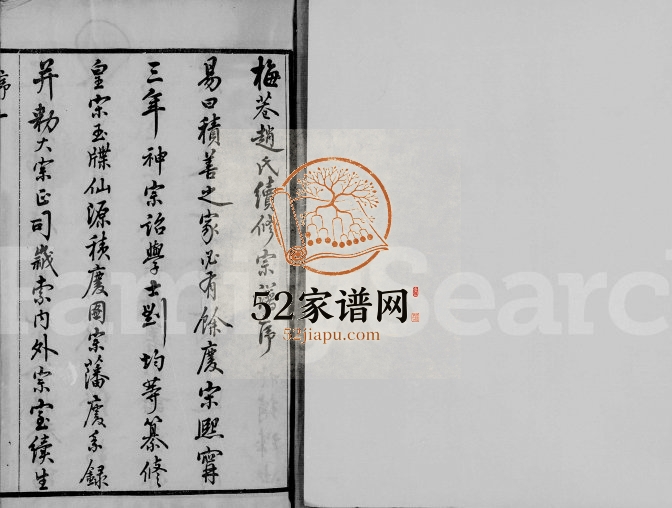 梅巷趙氏續修宗譜序
易曰積善之家必有餘慶宋熙寧
三年神宗詔學士劉均等纂修
皇宗玉牒仙源積慶圖宗藩慶系錄
并勅大宗正司歲索內外宗室續生
序一
52家谱网
52jiapu.com
FamilySearch